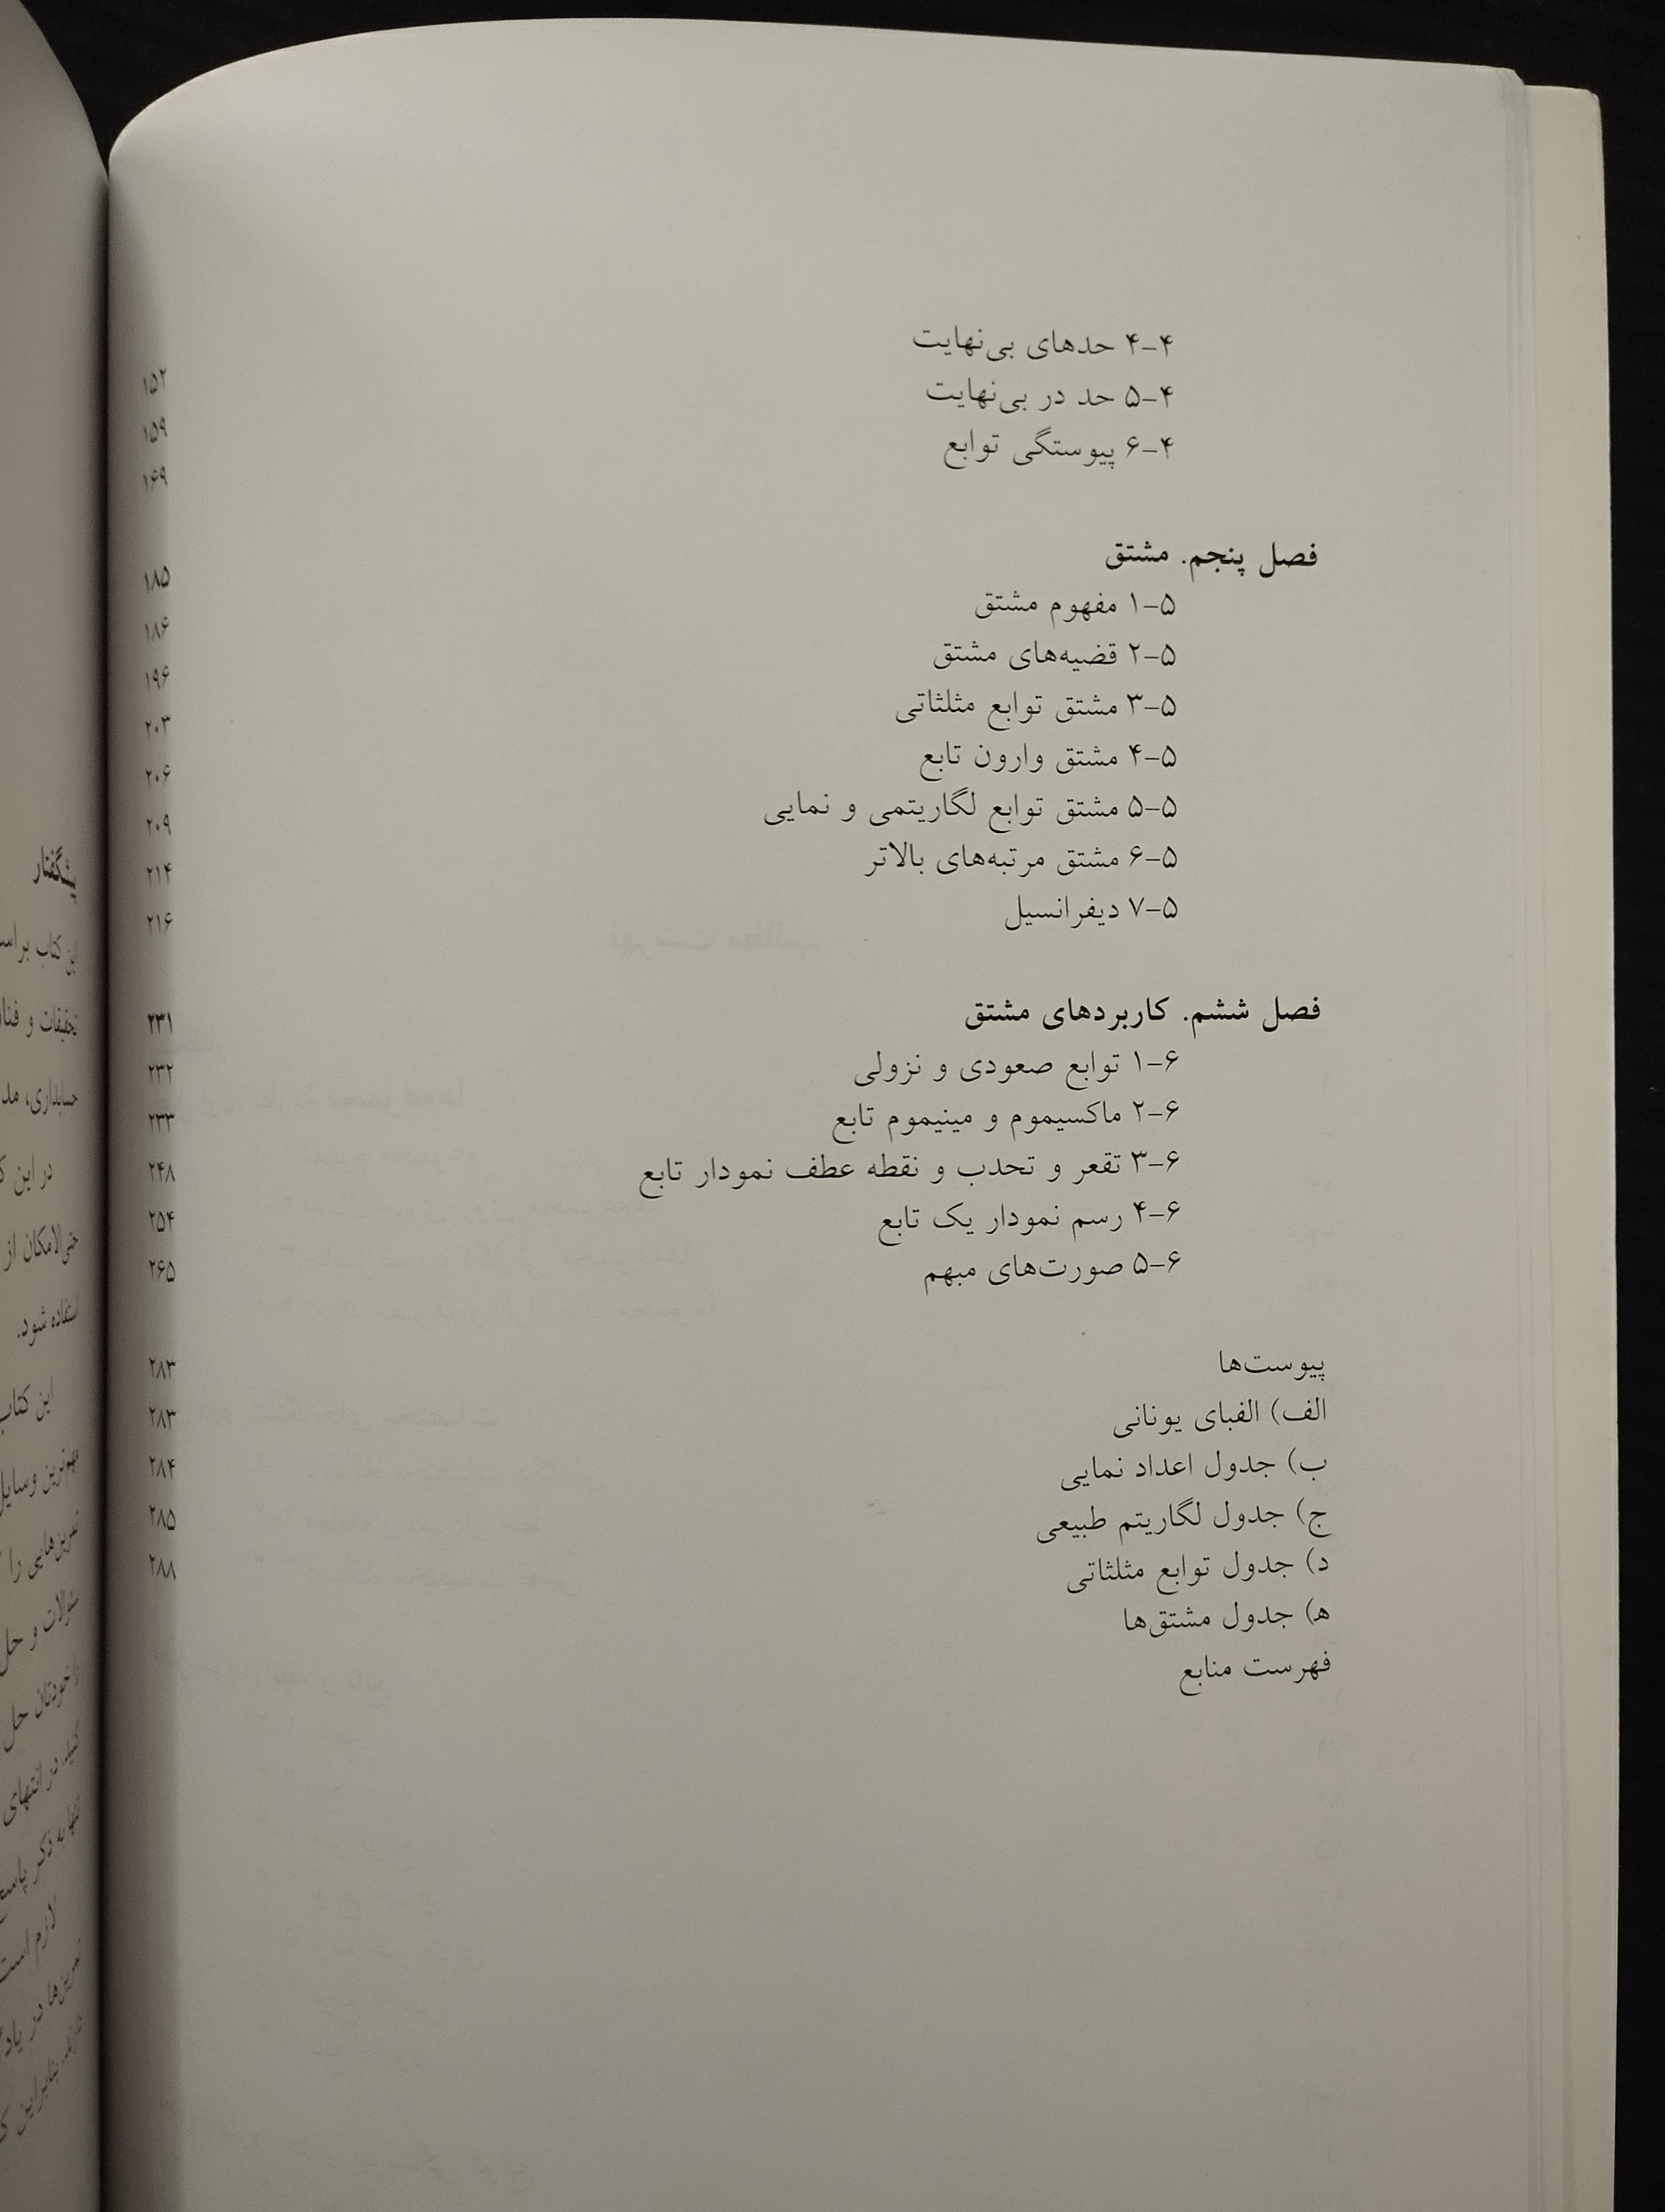 ۴-۴ حدهای بی‌نهایت ۱۵۲
۴-۵ حد در بی‌نهایت ۱۵۹
۴-۶ پیوستگی توابع ۱۶۹
فصل پنجم. مشتق ۱۸۵
۵-۱ مفهوم مشتق ۱۸۶
۵-۲ قضیه‌های مشتق ۱۹۶
۵-۳ مشتق توابع مثلثاتی ۲۰۳
۵-۴ مشتق وارون تابع ۲۰۶
۵-۵ مشتق توابع لگاریتمی و نمایی ۲۰۹
۵-۶ مشتق مرتبه‌های بالاتر ۲۱۴
۵-۷ دیفرانسیل ۲۱۶
فصل ششم. کاربردهای مشتق ۲۳۱
۶-۱ توابع صعودی و نزولی ۲۳۲
۶-۲ ماکسیموم و مینیموم تابع ۲۳۳
۶-۳ تقعر و تحدب و نقطه عطف نمودار تابع ۲۴۸
۶-۴ رسم نمودار یک تابع ۲۵۴
۶-۵ صورت‌های مبهم ۲۶۵
پیوست‌ها ۲۸۳
الف) الفبای یونانی ۲۸۳
ب) جدول اعداد نمایی ۲۸۴
ج) جدول لگاریتم طبیعی ۲۸۵
د) جدول توابع مثلثاتی ۲۸۸
ه‍) جدول مشتق‌ها
فهرست منابع
پیشگفتار
این کتاب
تحقیقات و
حسابداری،
در این
حتی‌الامکان از
استفاده شود.
این کتاب
مهم‌ترین وسایل
تمرین‌هایی را
سئوالات و حل
را خودتان حل
کنید. در انتهای
تنها به ذکر
لازم است
تمرین‌ها در
دارند. بنابراین